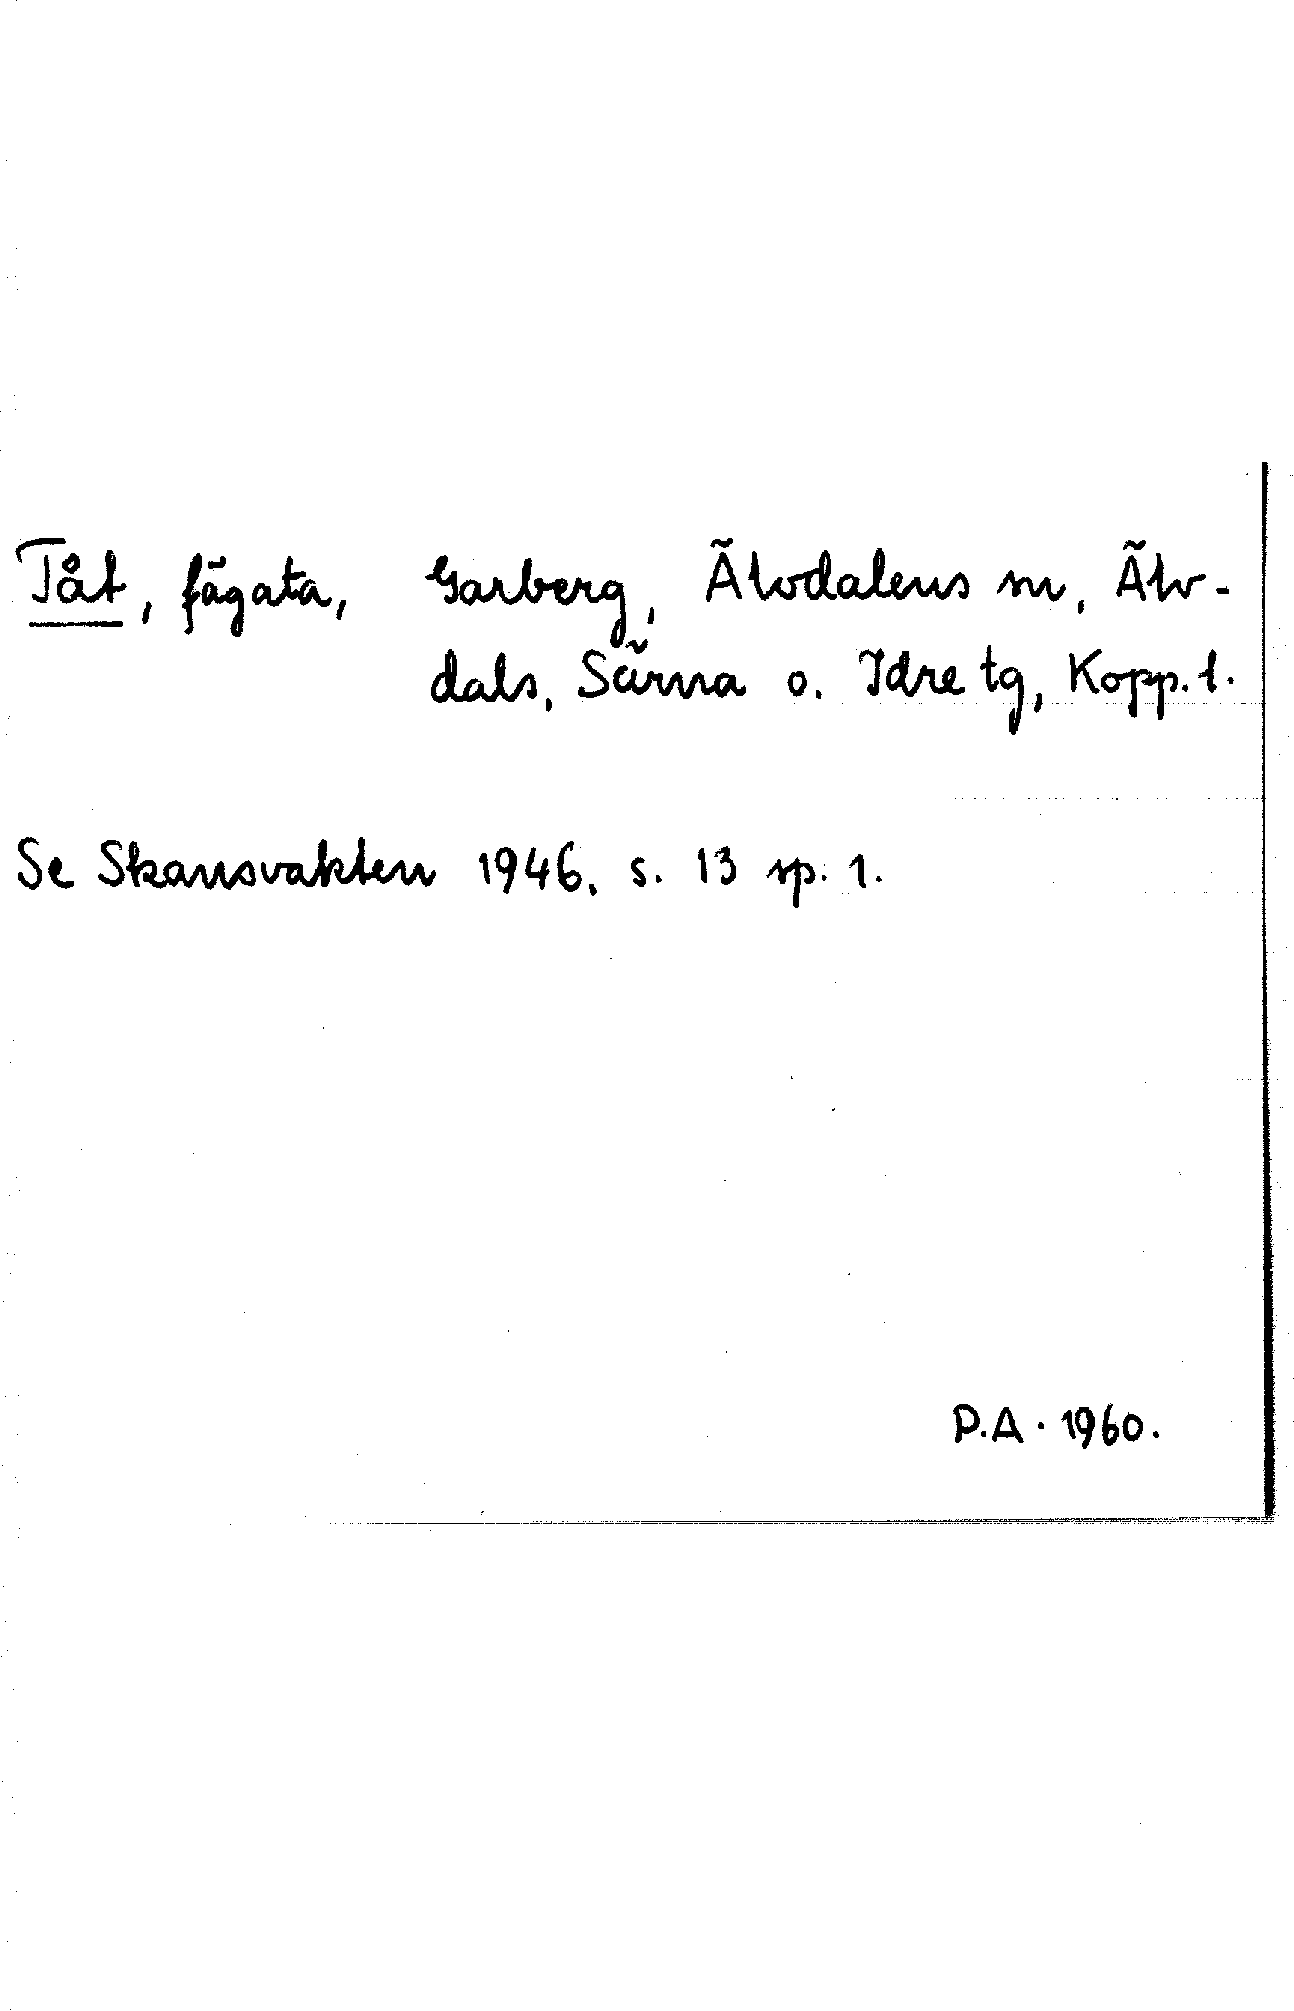 Tåt, fägata, Garberg, Älvdalens sn, Älv-
dals, Särna o. Idre tg, Kopp. l.
Se Skansvakten 1946. s. 13 sp. 1.
D.A. 1960.